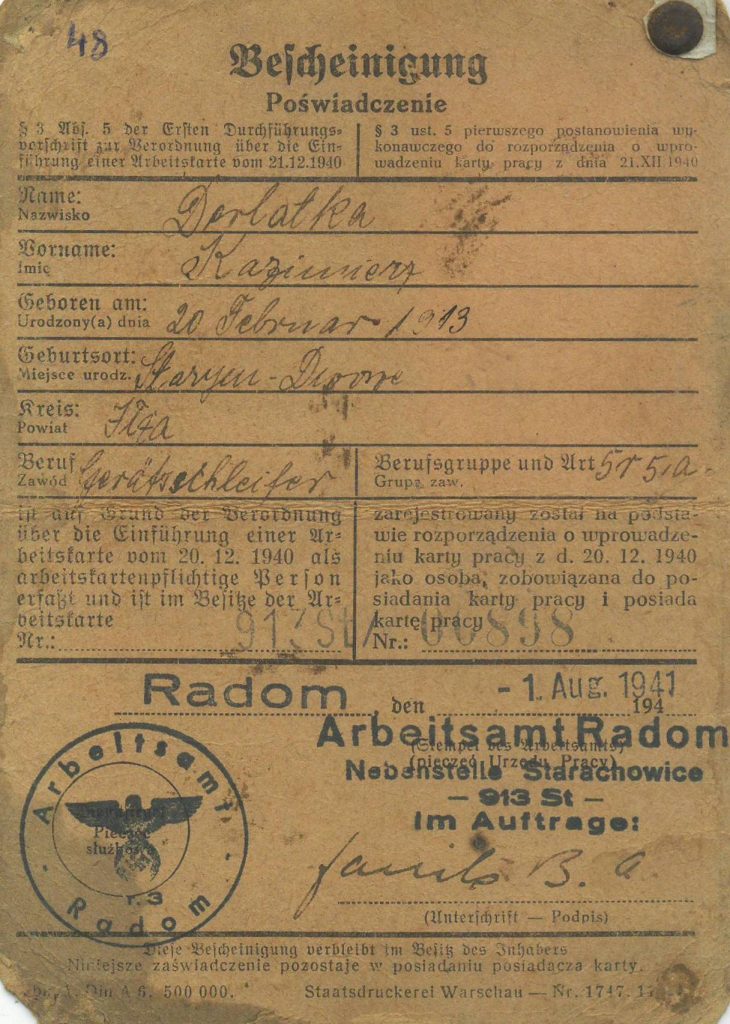 48
Bescheinigung
Poświadczenie
§ 3 Abs. 5 der Ersten Durchführungs-
vorschrift zur Verordnung über die Ein-
führung einer Arbeitskarte vom 21.12.1940
§ 3 ust. 5 pierwszego postanowienia wy-
konawczego do rozporządzenia o wpro-
wadzeniu karty pracy z dnia 21.XII 1940
Name: Dorlatka
Nazwisko
Vorname: Kazimierz
Imię
Geboren am: 20 Februar 1913
Urodzony(a) dnia
Geburtsort:
Miejsce urodz.
Kreis: Iłża
Powiat
Beruf Gerätschleifer
Zawód
Berufsgruppe und Art 5r 5,a
Grupa zaw.
ist auf Grund der Verordnung
über die Einführung einer Ar-
beitskarte vom 20. 12. 1940 als
arbeitskartenpflichtige Person
erfaßt und ist im Besitze der Ar-
beitskarte
Nr.: 913 St/
zarejestrowany został na podsta-
wie rozporządzenia o wprowadze-
niu karty pracy z d. 20. 12. 1940
jako osoba, zobowiązana do po-
siadania karty pracy i posiada
kartę pracy
Nr.: 00898
Radom, den - 1. Aug. 1941
194
Arbeitsamt Radom
(Stempel des Arbeitsamts)
(pieczęć Urzędu Pracy)
Nebenstelle Starachowice
— 913 St —
Im Auftrage:
Arbeitsamt
Pieczęć
służbowa
r. 3
Radom
(Unterschrift — Podpis)
Diese Bescheinigung verbleibt im Besitz des Inhabers
Niniejsze zaświadczenie pozostaje w posiadaniu posiadacza karty.
Din A 6. 500 000.
Staatsdruckerei Warschau — Nr. 1747.